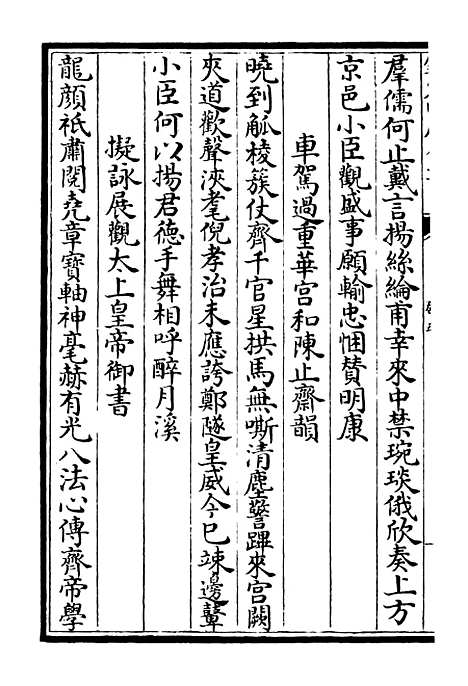 羣儒何止戴言揚絲綸甫幸來中禁琬琰俄欣奏上方
京邑小臣觀盛事願輸忠悃賛明康
車駕過重華宫和陳止齋韻
曉到觚棱簇仗齊千官星拱馬無嘶清塵警蹕來宫闕
夾道歡聲浹耄倪孝治未應誇鄭隧皇威今已竦邊鼙
小臣何以揚君德手舞相呼醉月溪
擬詠展觀太上皇帝御書
龍顔祗肅閱堯章寶軸神毫赫有光八法心傳齊帝學